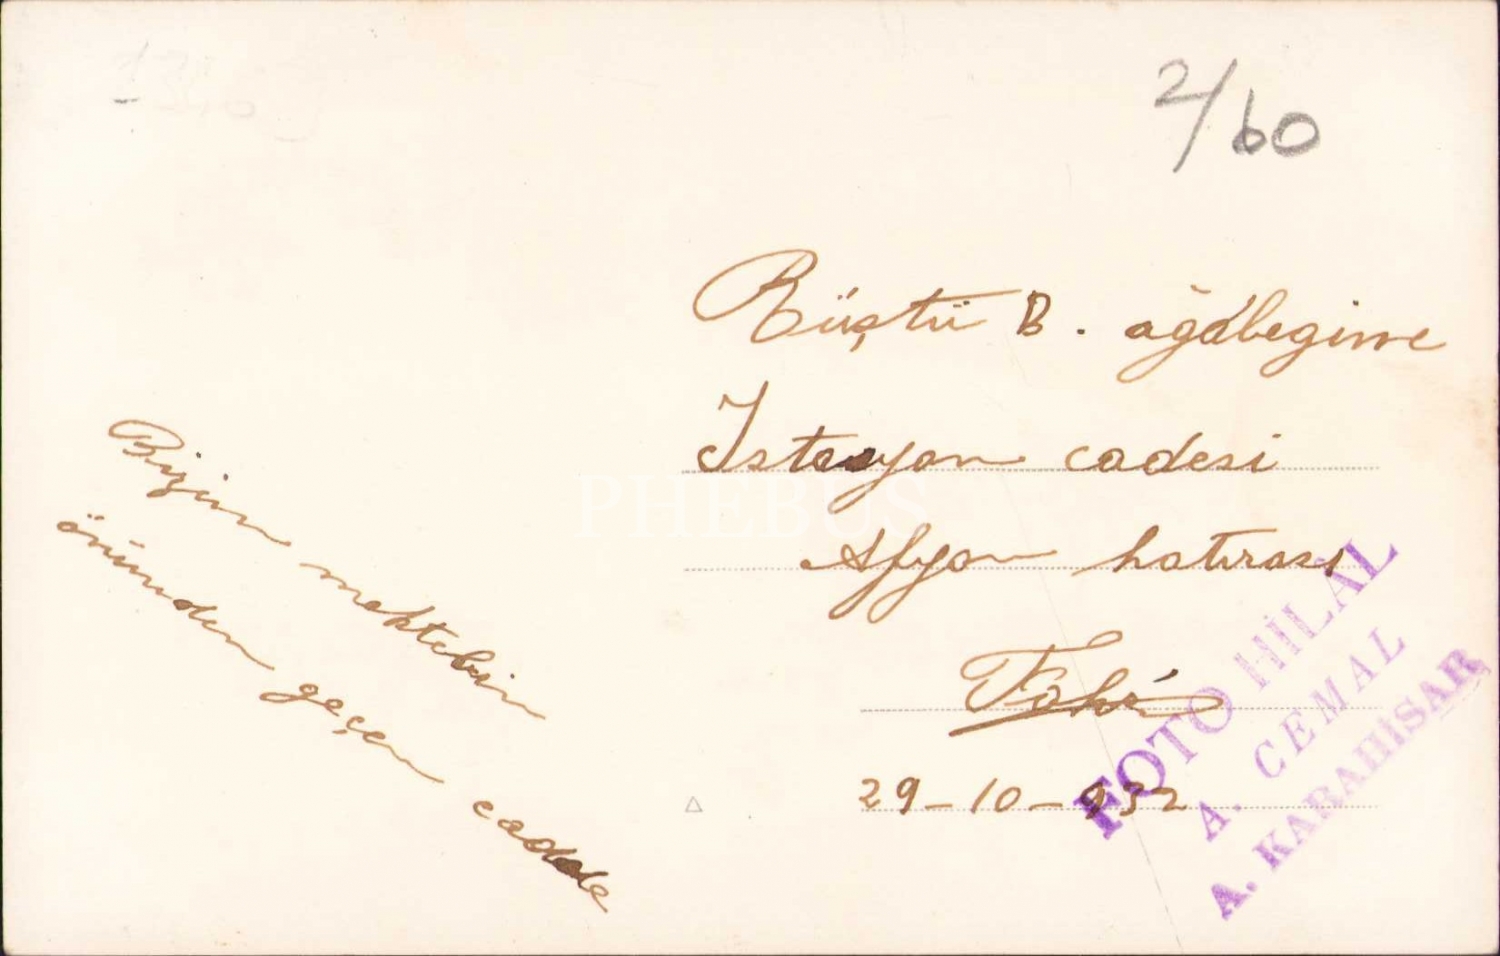 2/60
Rüştü B. ağabegime
İstasyon cadesi
Afyon hatırası
29-10-932
Bizim mektebin
önünden geçen cadde
FOTO HİLAL
A. CEMAL
A. KARAHİSAR
PHEBUS